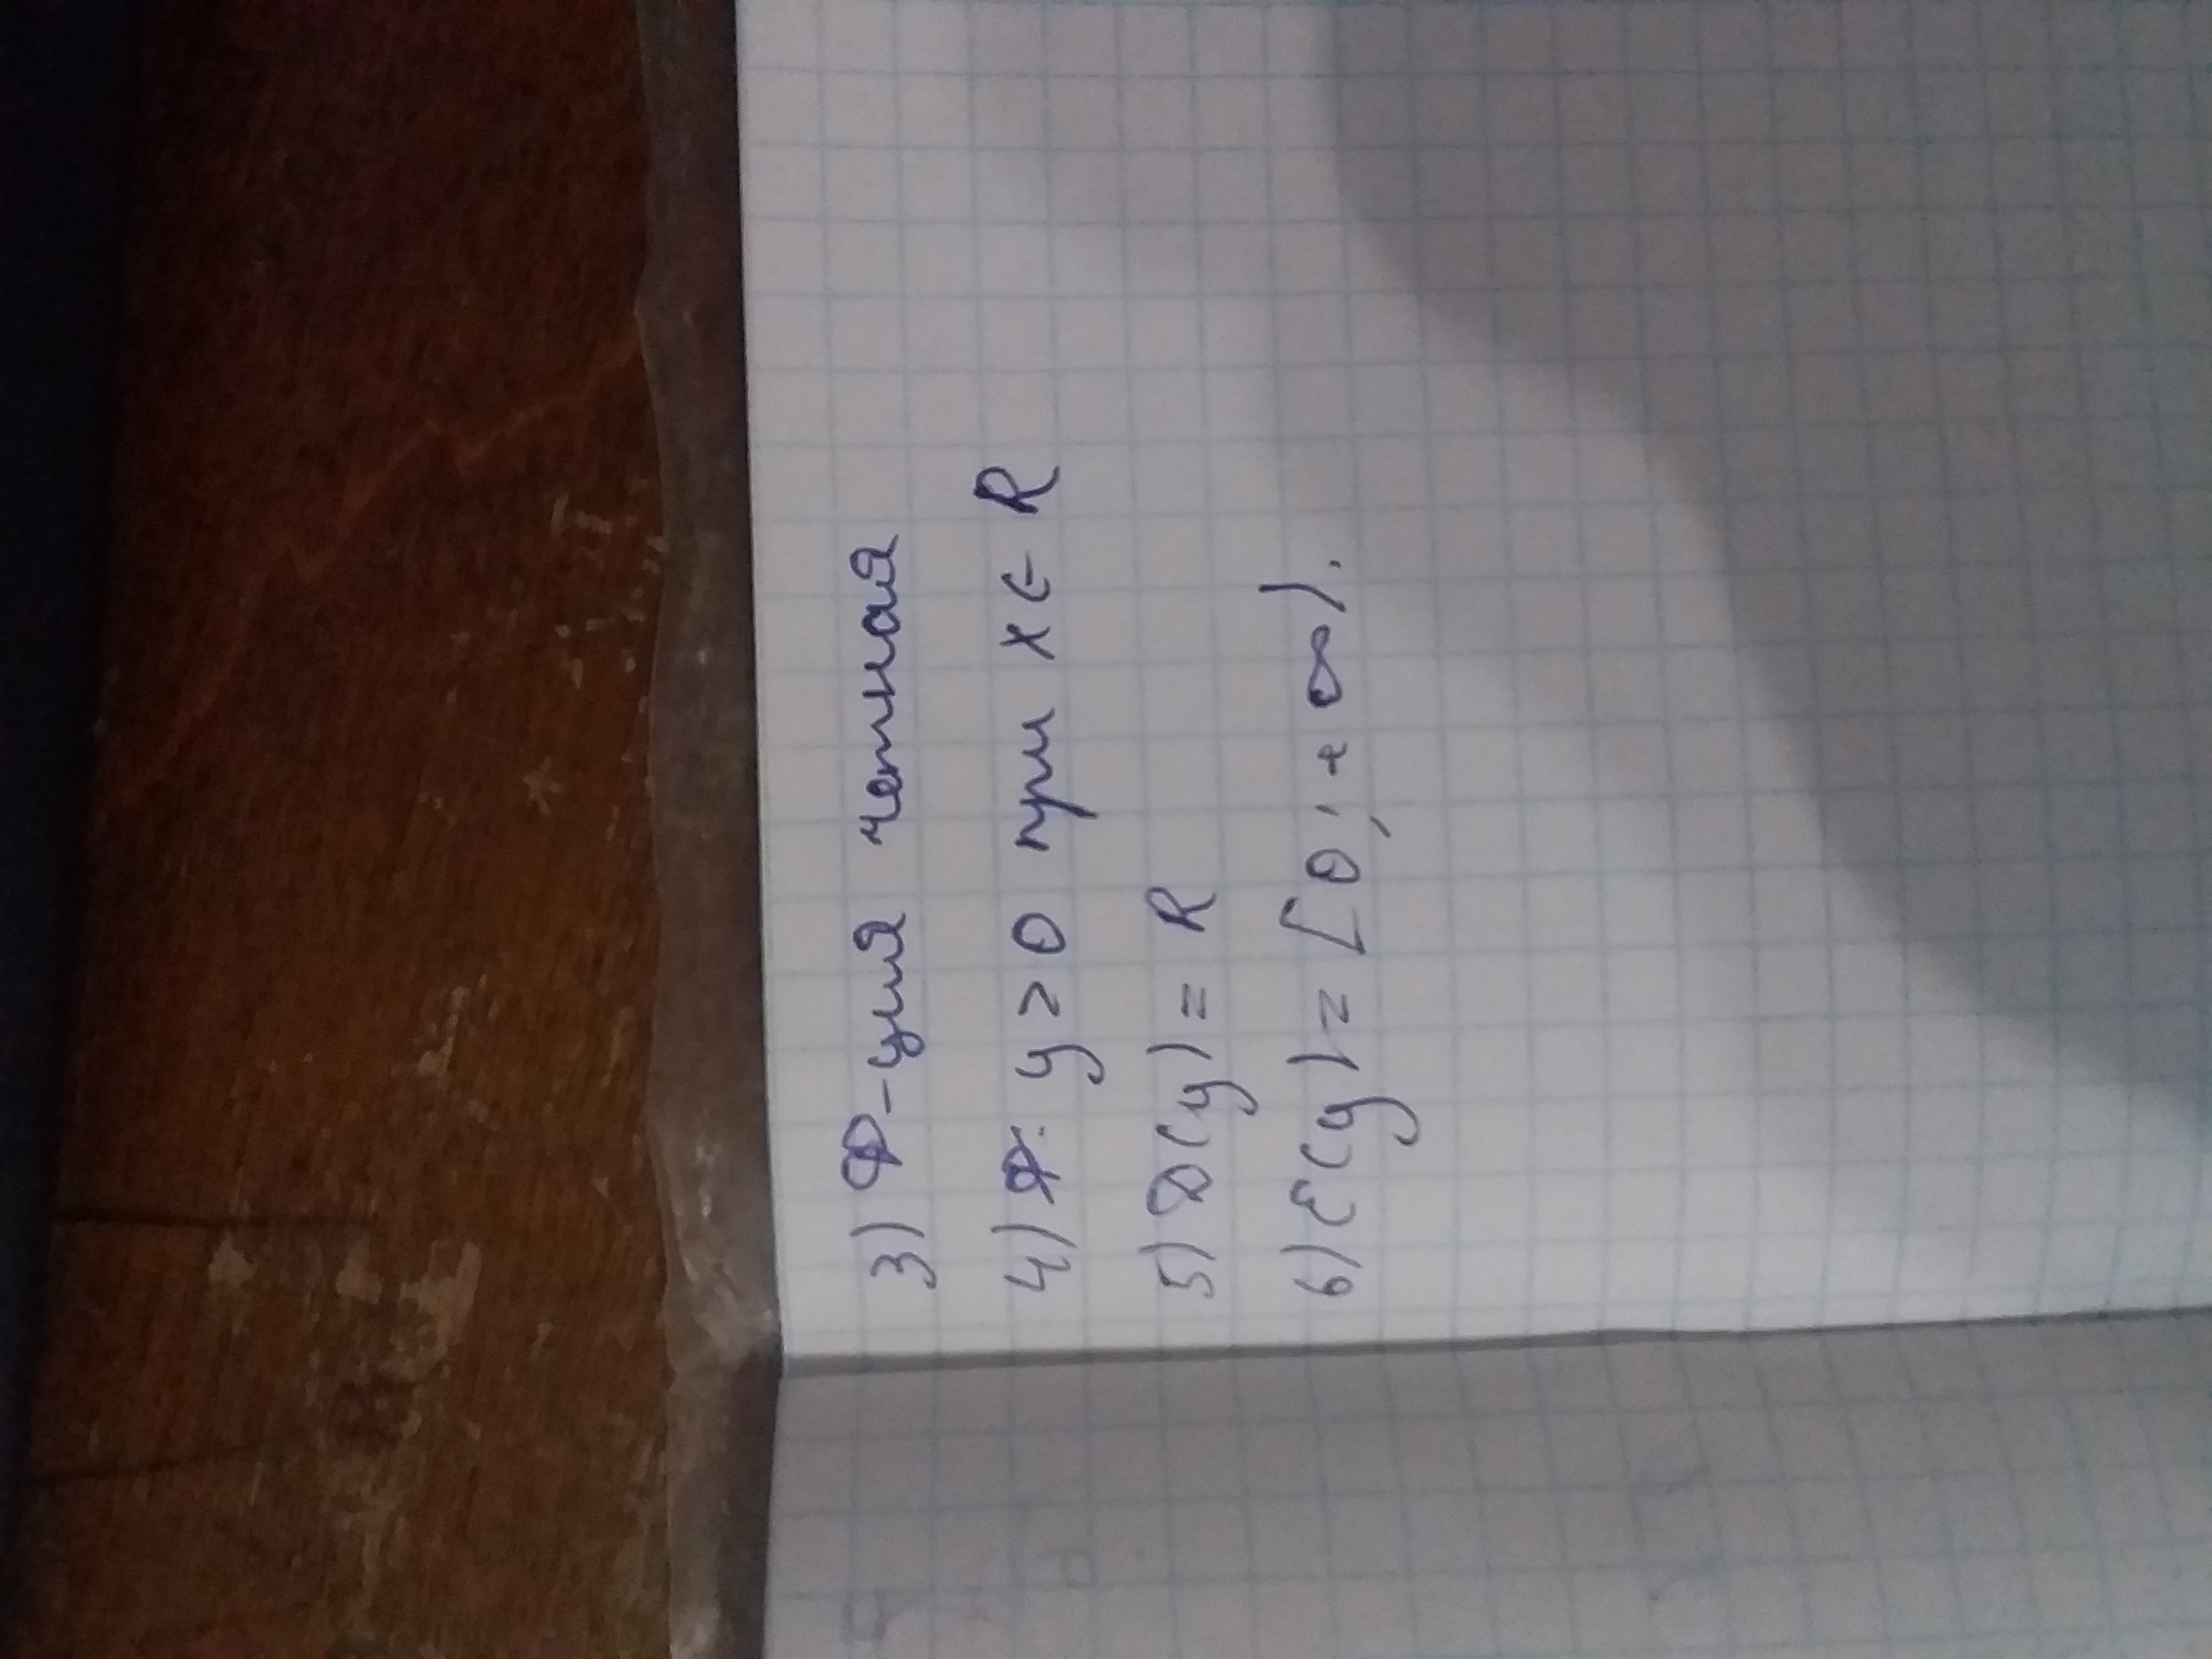 3) Ф-ция четная
4) y > 0 при x ∈ R
5) D(y) = R
6) E(y) = [0; +∞).